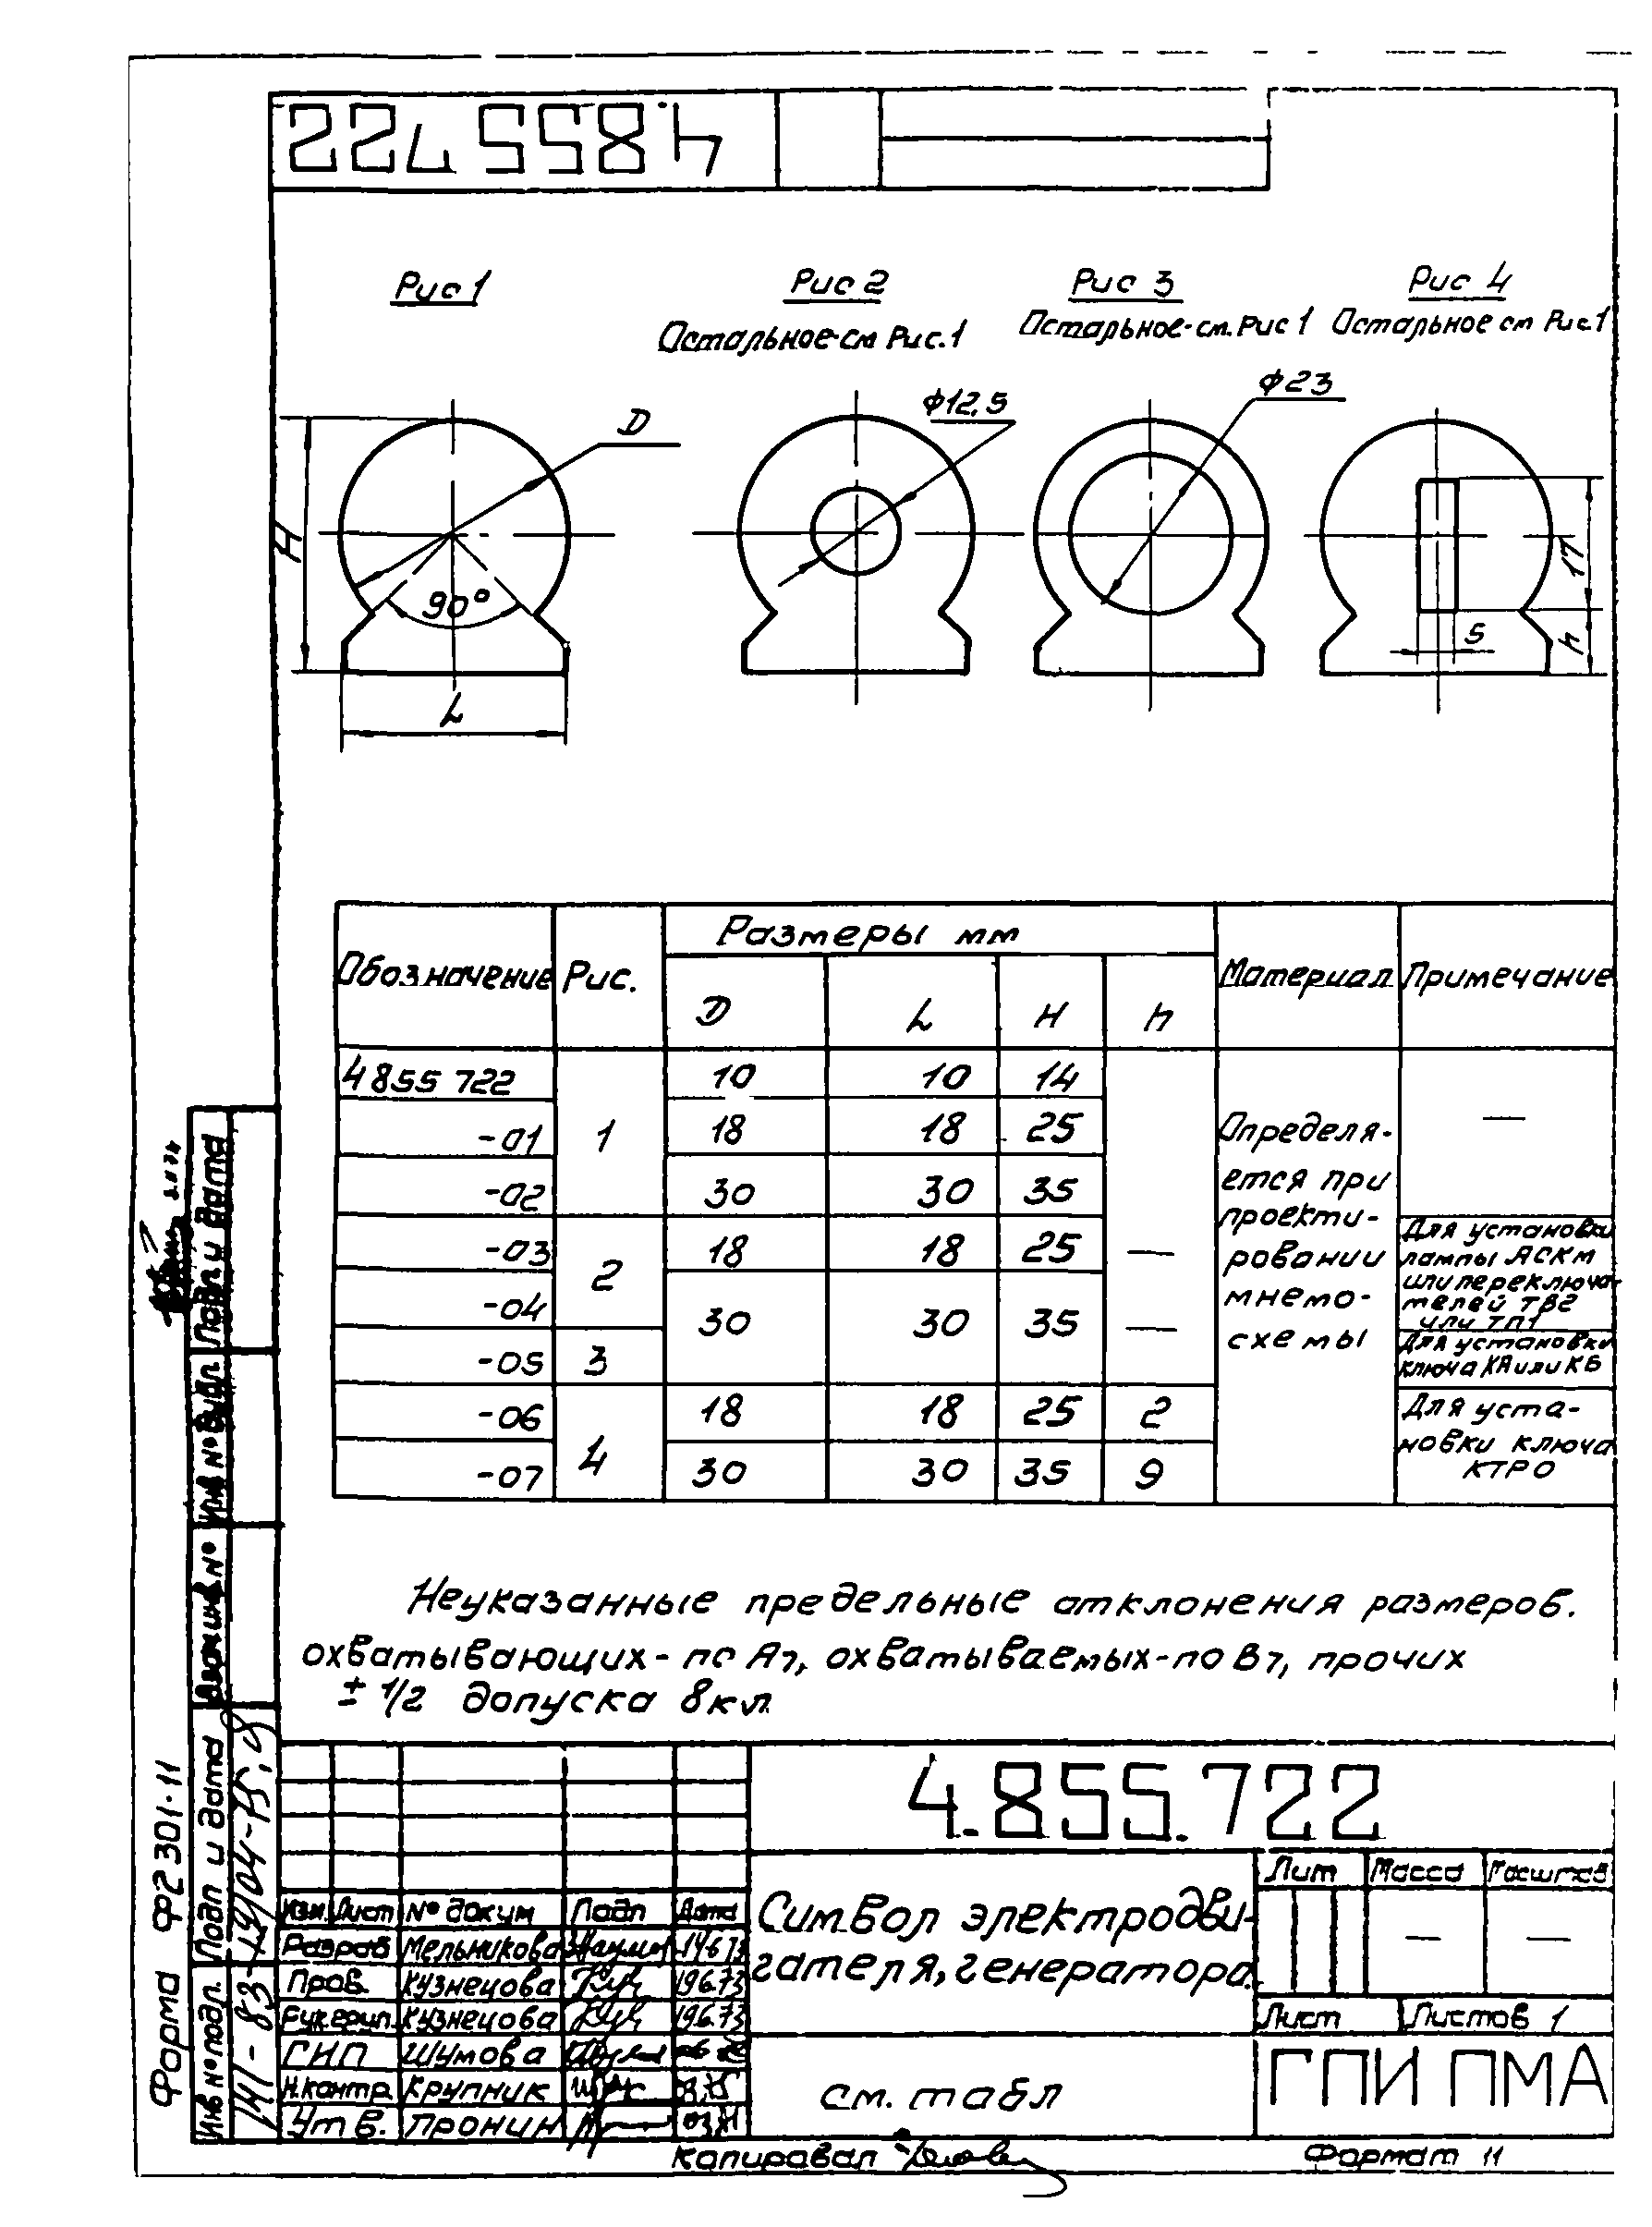 4.855 722
Рис 1
Рис 2
Остальное-см Рис.1
Рис 3
Остальное-см. Рис 1
Рис 4
Остальное см Рис.1
D
H
90°
L
ф12,5
ф23
17
5
h
Обозначение Рис. Размеры мм Материал Примечание
D L H h
4 855 722 1 10 10 14
-01 18 18 25
-02 30 30 35
-03 2 18 18 25 —
-04 30 30 35 —
-05 3
-06 4 18 18 25 2
-07 30 30 35 9
Определя-
ется при
проекти-
ровании
мнемо-
схемы
—
Для установки
лампы АСКМ
или переключа-
телей ТВ2
или ТП1
Для установки
ключа КА или КБ
Для уста-
новки ключа
КТРО
Неуказанные предельные отклонения размеров.
охватывающих - по А7, охватываемых - по В7, прочих
± 1/2 допуска 8кл
4.855.722
Символ электродви-
гателя, генератора.
см. табл
Лит Масса Масштаб
— —
Лист Листов 1
ГПИ ПМА
Изм. Лист № докум Подп Дата
Разраб Мельникова 14673
Пров. Кузнецова 196.73
Рук.груп. Кузнецова 196.73
ГИП Шумова
Н.контр. Крупник
Утв. Пронин
Копировал
Формат 11
Форма Ф2 301-11
Подп и дата
Инв № дубл
Взам инв №
Подп и дата
Инв № подл.